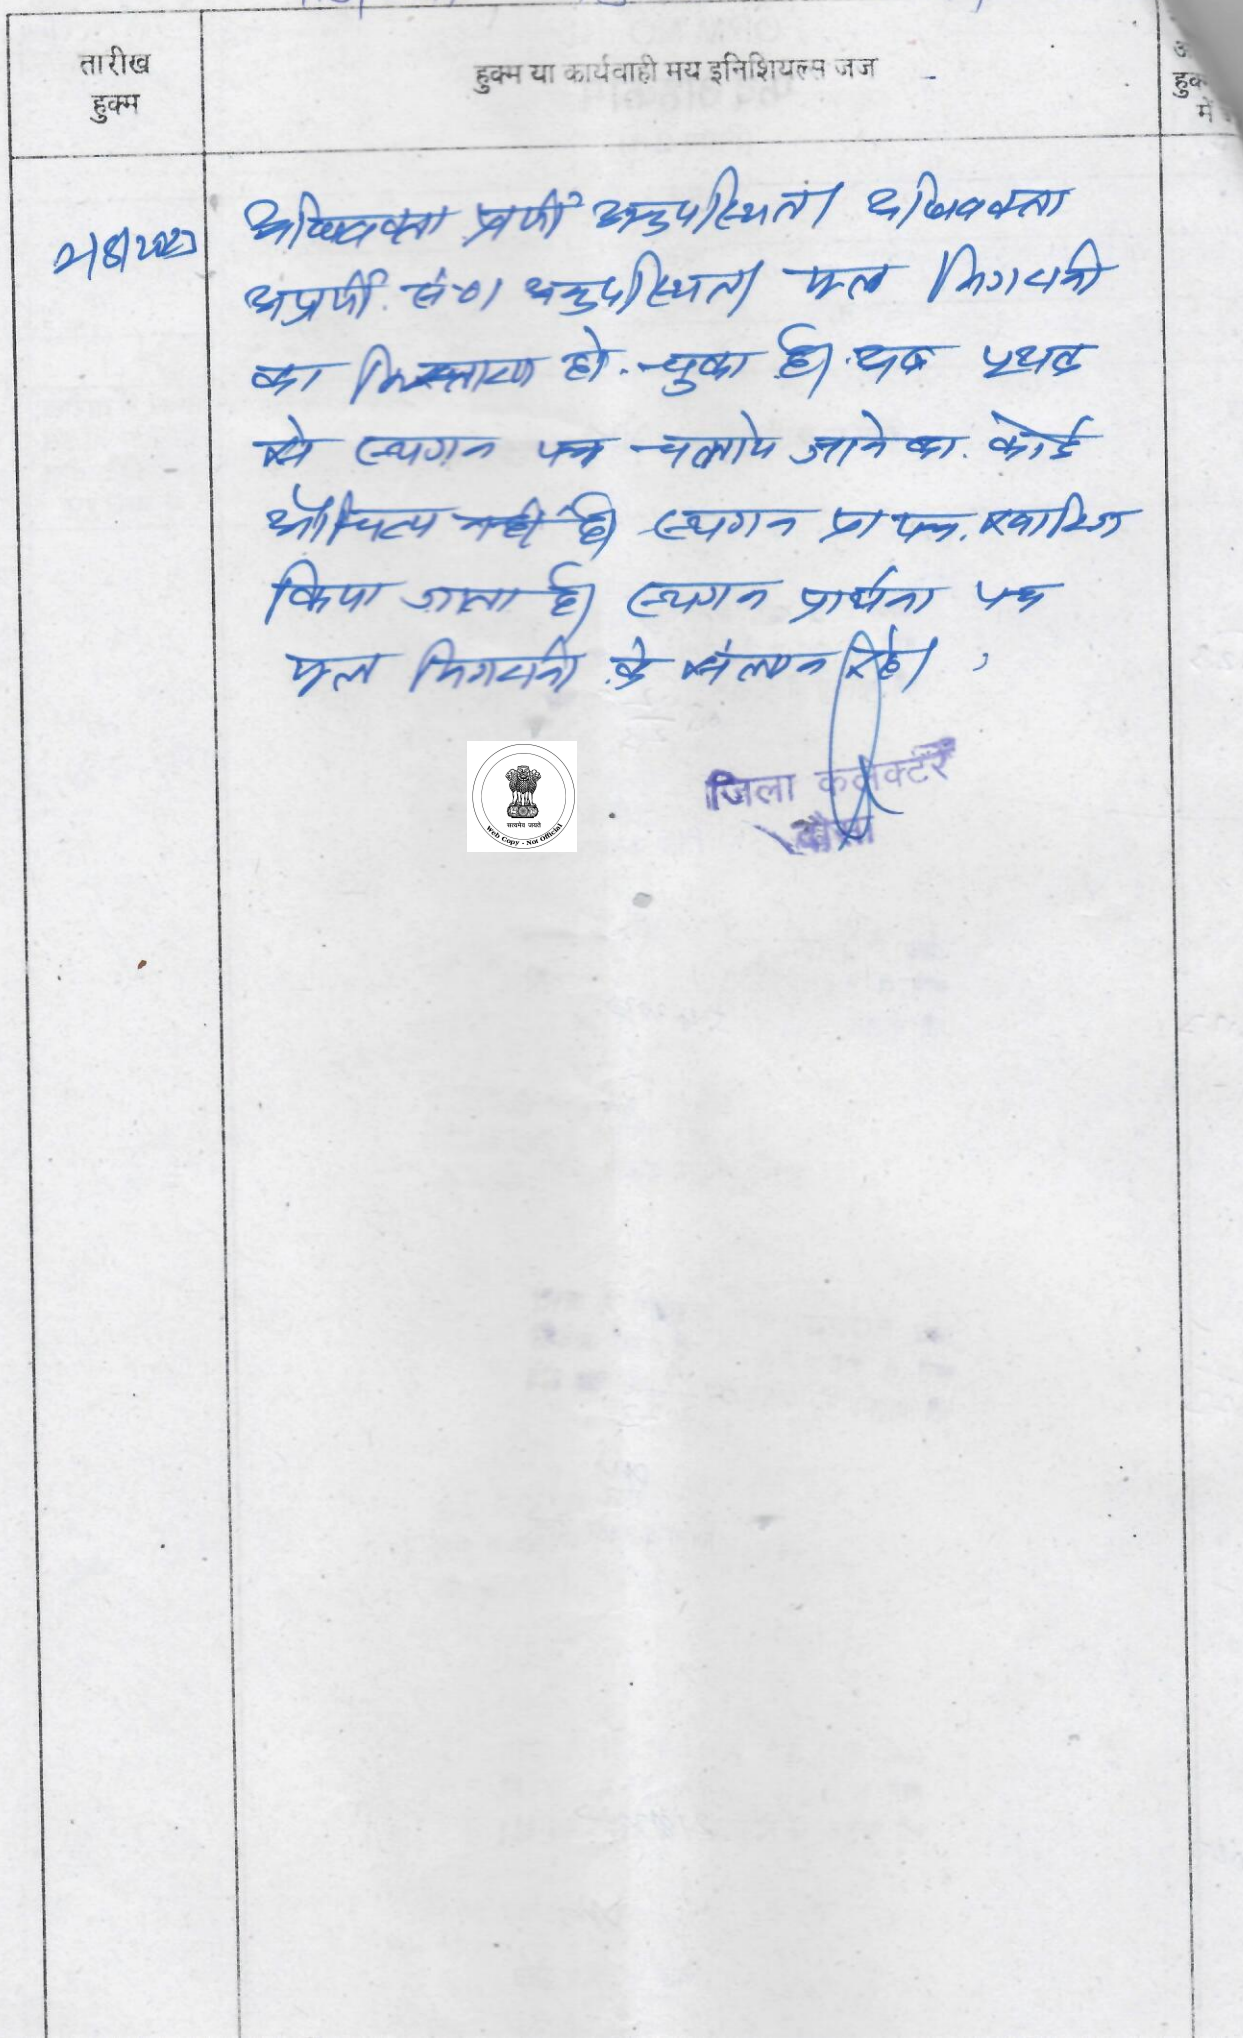 तारीख
हुक्म
हुक्म या कार्यवाही मय इनिशियल्स जज
हुक्
में
अधिवक्ता प्रार्थी अनुपस्थित। अधिवक्ता
अप्रार्थी सं-01 अनुपस्थित। मूल निगरानी
का निस्तारण हो चुका है। अब पृथक
से स्थगन पत्र चलाये जाने का कोई
औचित्य नहीं है। स्थगन प्रा पत्र खारिज
किया जाता है। स्थगन प्रार्थना पत्र
मूल निगरानी के संलग्न रहे।
सत्यमेव जयते
Web Copy - Not Official
जिला कलक्टर
दौसा